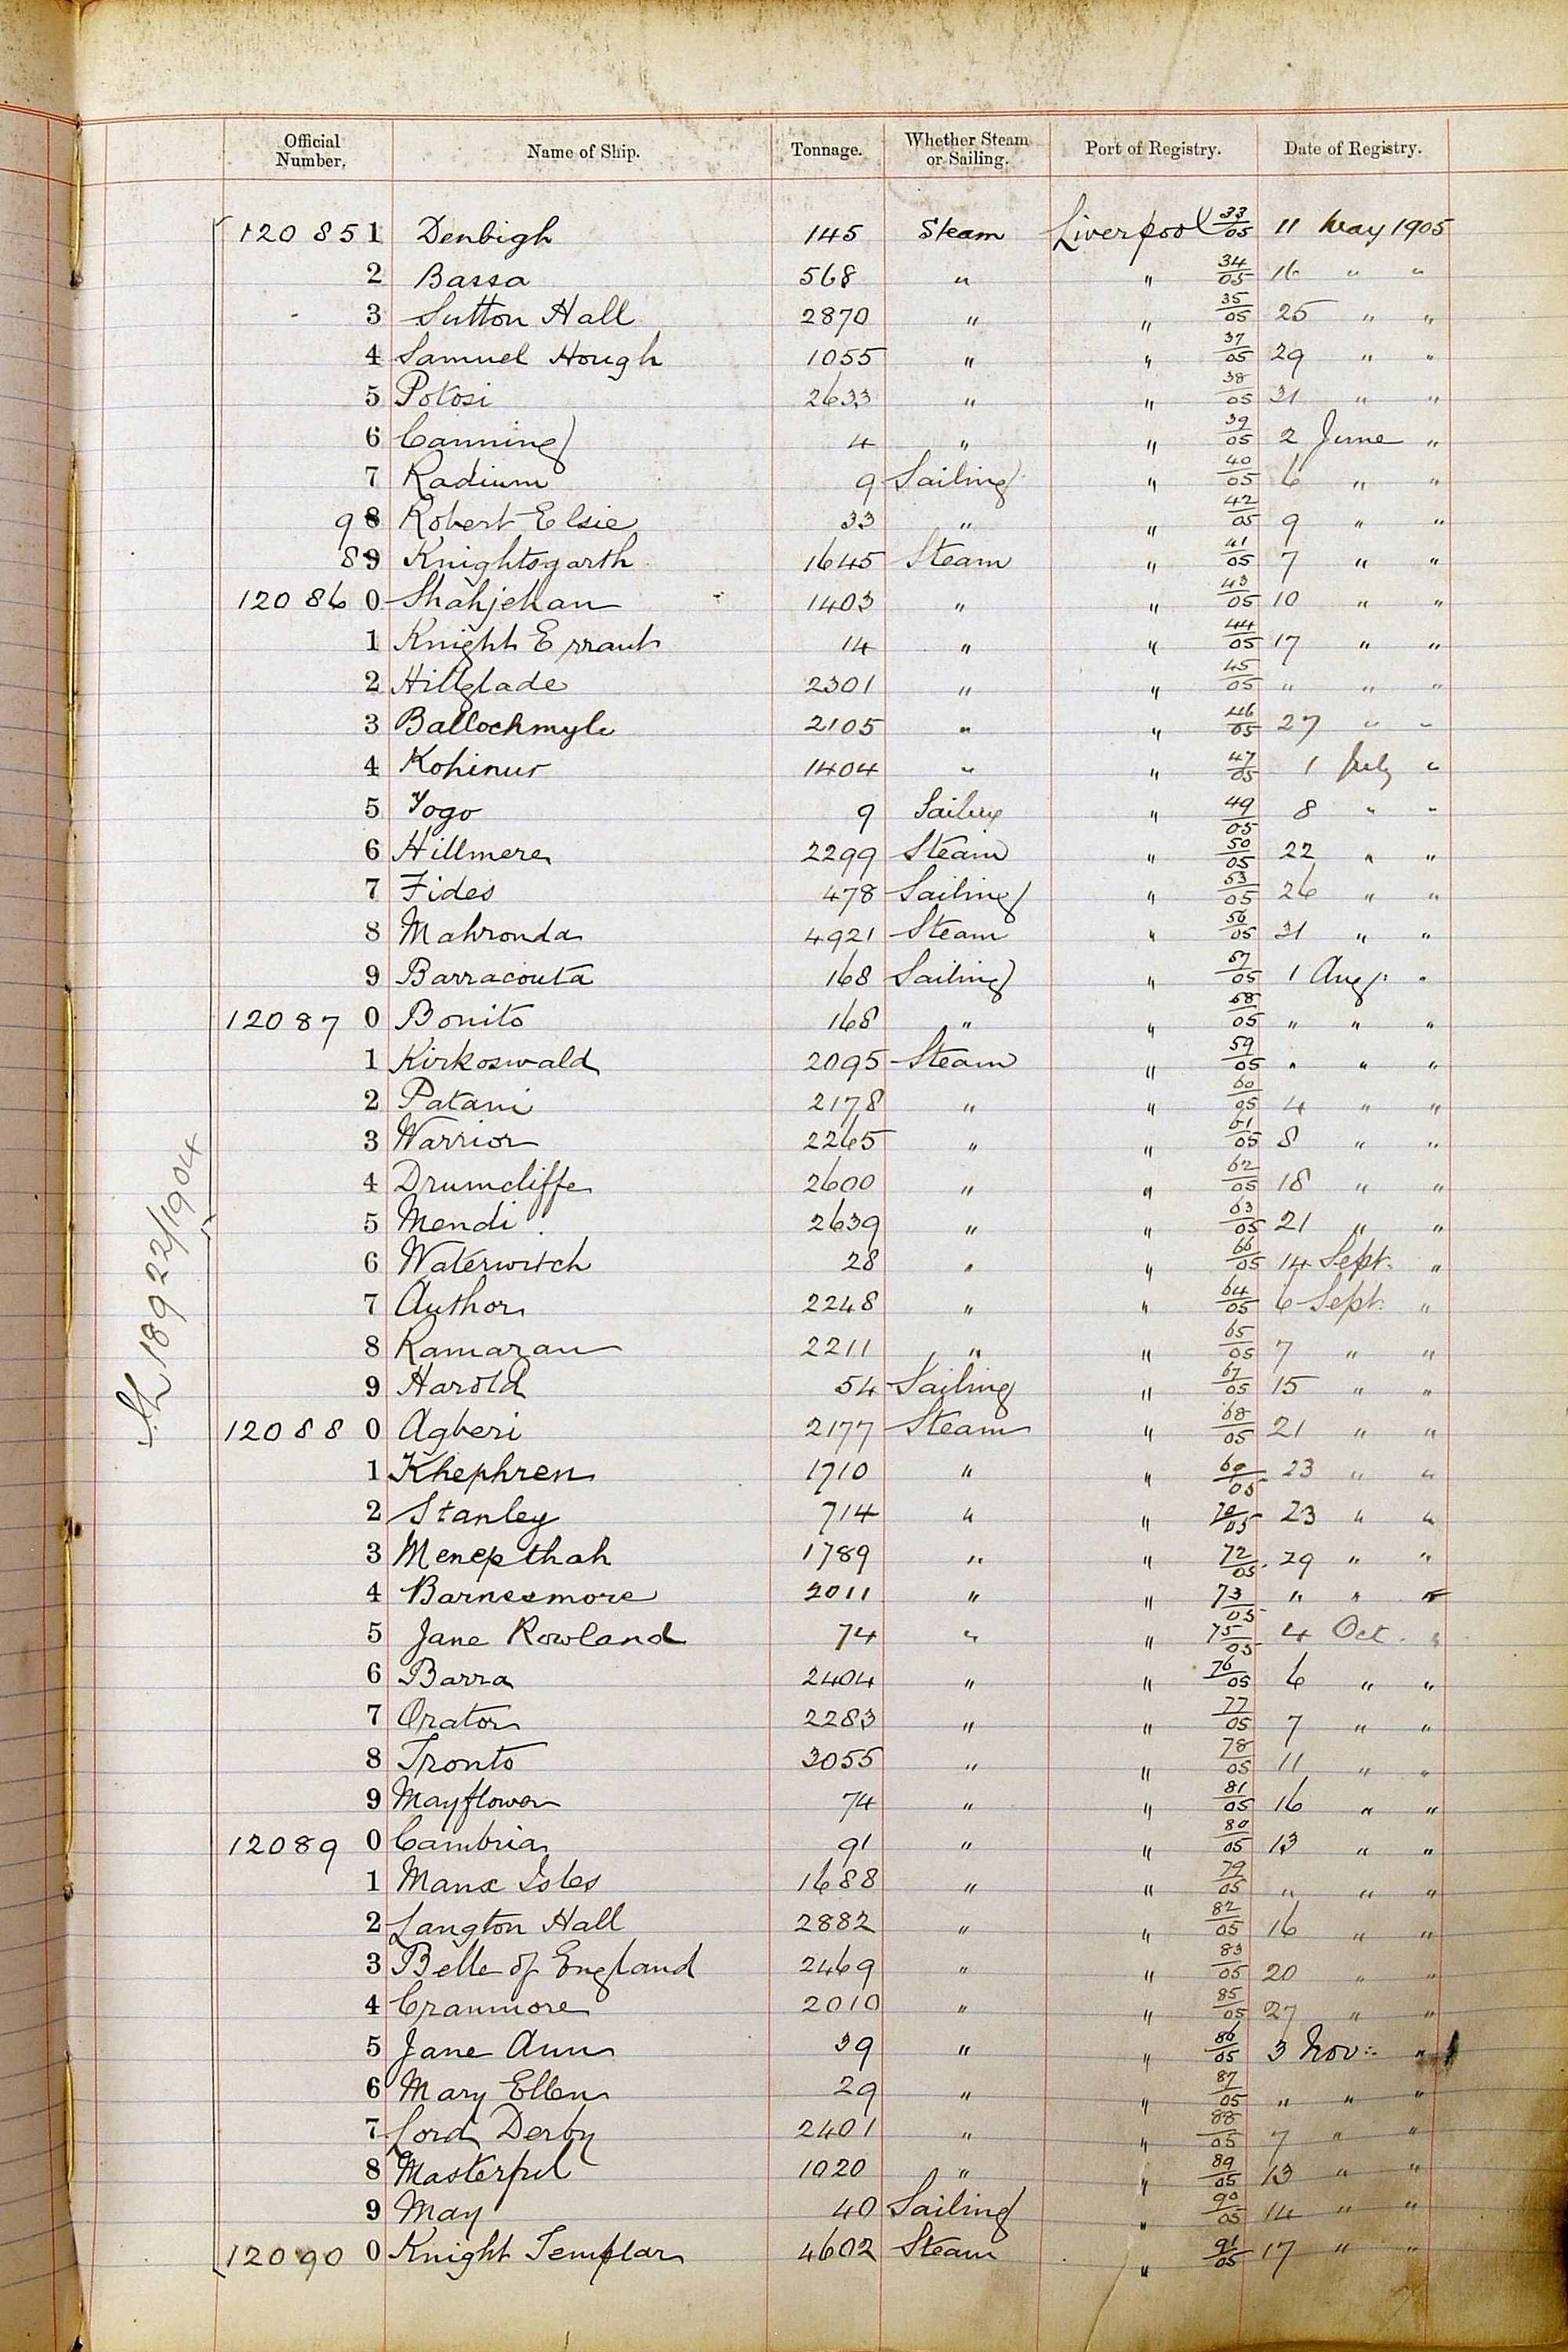 Official Number. Name of Ship. Tonnage. Whether Steam or Sailing. Port of Registry. Date of Registry.
120 85 1 Denbigh 145 Steam Liverpool 33/05 11 May 1905
2 Bassa 568 " " 34/05 16 " "
3 Sutton Hall 2870 " " 35/05 25 " "
4 Samuel Hough 1055 " " 37/05 29 " "
5 Potosi 2633 " " 38/05 31 " "
6 Canning 4 " " 39/05 2 June "
7 Radium 9 Sailing " 40/05 6 " "
9 8 Robert Elsie 33 " " 42/05 9 " "
8 9 Knightsgarth 1645 Steam " 41/05 7 " "
120 86 0 Shahjehan 1403 " " 43/05 10 " "
1 Knight Errant 14 " " 44/05 17 " "
2 Hillglade 2301 " " 45/05 " " "
3 Ballochmyle 2105 " " 46/05 27 " "
4 Kohinur 1404 " " 47/05 1 July "
5 Yogo 9 Sailing " 49/05 8 " "
6 Hillmere 2299 Steam " 50/05 22 " "
7 Fides 478 Sailing " 53/05 26 " "
8 Mahronda 4921 Steam " 56/05 31 " "
9 Barracouta 168 Sailing " 57/05 1 Aug: "
120 87 0 Bonito 168 " " 58/05 " " "
1 Kirkoswald 2095 Steam " 59/05 " " "
2 Patani 2178 " " 60/05 4 " "
3 Warrior 2265 " " 61/05 8 " "
4 Drumcliffe 2600 " " 62/05 18 " "
5 Mendi 2639 " " 63/05 21 " "
6 Waterwitch 28 " " 66/05 14 Sept. "
7 Author 2248 " " 64/05 6 Sept. "
8 Ramazan 2211 " " 65/05 7 " "
9 Harold 54 Sailing " 67/05 15 " "
120 88 0 Agberi 2177 Steam " 68/05 21 " "
1 Khephren 1710 " " 69/05 23 " "
2 Stanley 714 " " 70/05 23 " "
3 Menepthah 1789 " " 72/05 29 " "
4 Barnesmore 2011 " " 73/05 " " "
5 Jane Rowland 74 " " 75/05 4 Oct. "
6 Barra 2404 " " 76/05 6 " "
7 Orator 2283 " " 77/05 7 " "
8 Tronto 3055 " " 78/05 11 " "
9 Mayflower 74 " " 81/05 16 " "
12089 0 Cambria 91 " " 80/05 13 " "
1 Manx Isles 1688 " " 79/05 " " "
2 Langton Hall 2882 " " 82/05 16 " "
3 Belle of England 2469 " " 83/05 20 " "
4 Cranmore 2010 " " 85/05 27 " "
5 Jane Ann 39 " " 86/05 3 Nov: "
6 Mary Ellen 29 " " 87/05 " " "
7 Lord Derby 2401 " " 88/05 7 " "
8 Masterful 1020 " " 89/05 13 " "
9 May 40 Sailing " 90/05 14 " "
120 90 0 Knight Templar 4602 Steam " 91/05 17 " "
18922/1904